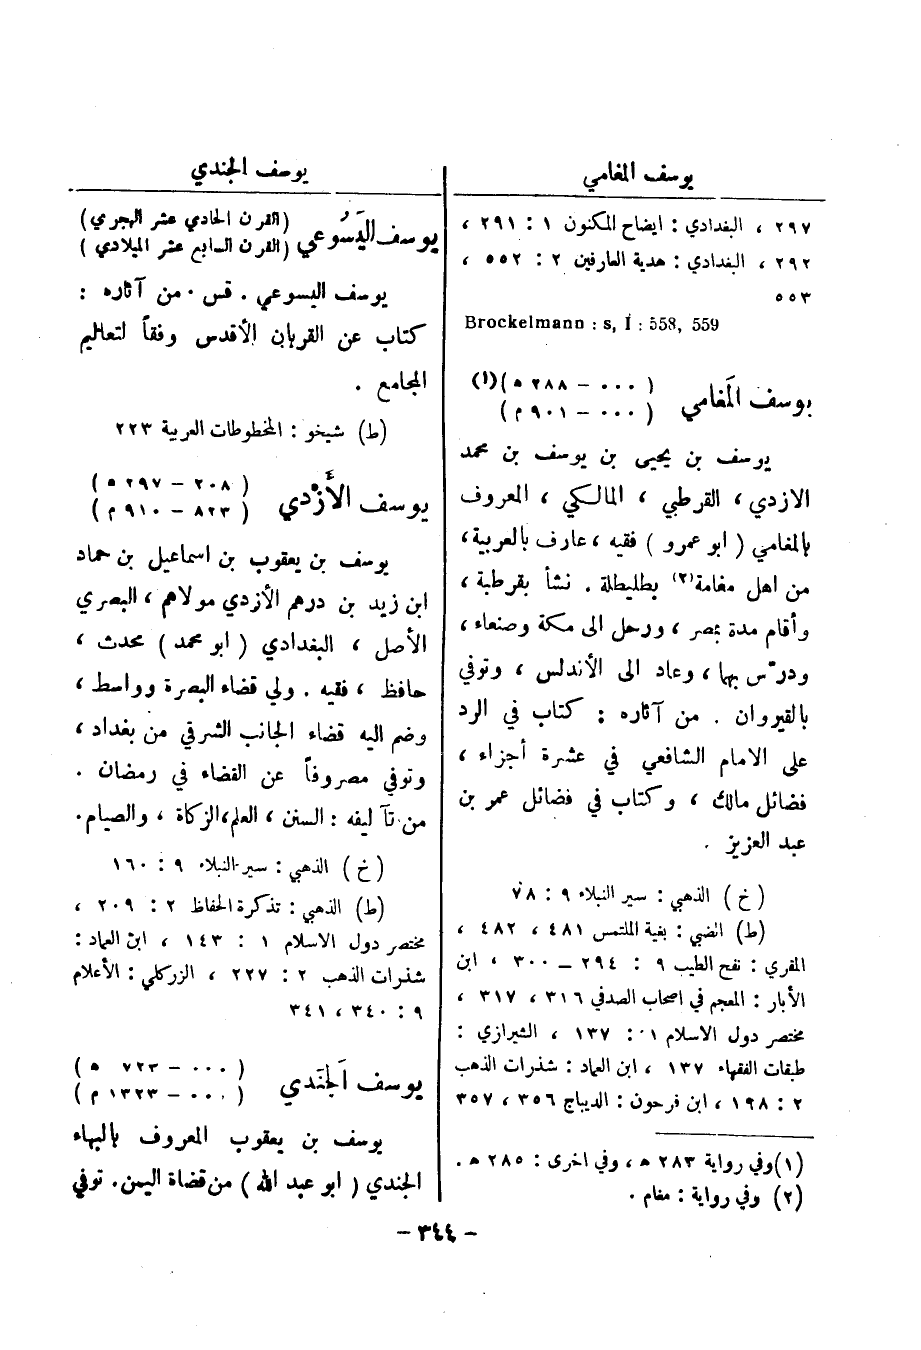 يوسف المغامي
٢٩٧ ، البغدادي : ايضاح المكنون ١ : ٢٩١ ،
٢٩٢ ، البغدادي : هدية العارفين ٢ : ٥٥٢ ،
٥٥٣
Brockelmann : s, I : 558, 559
يوسف المَغامي ( ٠٠٠ – ٢٨٨ ه )(١)
( ٠٠٠ – ٩٠١ م )
يوسف بن يحيى بن يوسف بن محمد
الازدي ، القرطبي ، المالكي ، المعروف
بالمغامي ( ابو عمرو ) فقيه ، عارف بالعربية ،
من اهل مغامة(٢) بطليطلة . نشأ بقرطبة ،
وأقام مدة بمصر ، ورحل الى مكة وصنعاء ،
ودرّس بها ، وعاد الى الأندلس ، وتوفي
بالقيروان . من آثاره : كتاب في الرد
على الامام الشافعي في عشرة أجزاء ،
فضائل مالك ، وكتاب في فضائل عمر بن
عبد العزيز .
( خ ) الذهبي : سير النبلاء ٩ : ٧٨
(ط) الضبي : بغية الملتمس ٤٨١ ، ٤٨٢ ،
المقري : نفح الطيب ٩ : ٢٩٤ – ٣٠٠ ، ابن
الأبار : المعجم في اصحاب الصدفي ٣١٦ ، ٣١٧ ،
مختصر دول الاسلام ١ : ١٣٧ ، الشيرازي :
طبقات الفقهاء ١٣٧ ، ابن العماد : شذرات الذهب
٢ : ١٩٨ ، ابن فرحون : الديباج ٣٥٦ ، ٣٥٧
(١) وفي رواية ٢٨٣ ه ، وفي اخرى : ٢٨٥ ه .
(٢) وفي رواية : مغام .
يوسف الجندي
يوسف اليَسُوعي (القرن الحادي عشر الهجري)
(القرن السابع عشر الميلادي )
يوسف اليسوعي . قس . من آثاره :
كتاب عن القربان الأقدس وفقاً لتعاليم
المجامع .
(ط) شيخو : المخطوطات العربية ٢٢٣
يوسف الأَزْدي ( ٢٠٨ – ٢٩٧ ه )
( ٨٢٣ – ٩١٠ م )
يوسف بن يعقوب بن اسماعيل بن حماد
ابن زيد بن درهم الأزدي مولاهم ، البصري
الأصل ، البغدادي ( ابو محمد ) محدث ،
حافظ ، فقيه . ولي قضاء البصرة وواسط ،
وضم اليه قضاء الجانب الشرقي من بغداد ،
وتوفي مصروفاً عن القضاء في رمضان .
من تآليفه : السنن ، العلم ، الزكاة ، والصيام .
( خ ) الذهبي : سير النبلاء ٩ : ١٦٠
(ط) الذهبي : تذكرة الحفاظ ٢ : ٢٠٩ ،
مختصر دول الاسلام ١ : ١٤٣ ، ابن العماد :
شذرات الذهب ٢ : ٢٢٧ ، الزركلي : الأعلام
٩ : ٣٤٠ ، ٣٤١
يوسف الجَنَدي ( ٠٠٠ – ٧٢٣ ه )
( ٠٠٠ – ١٣٢٣ م )
يوسف بن يعقوب المعروف بالبهاء
الجندي ( ابو عبد الله ) من قضاة اليمن . توفي
– ٣٤٤ –